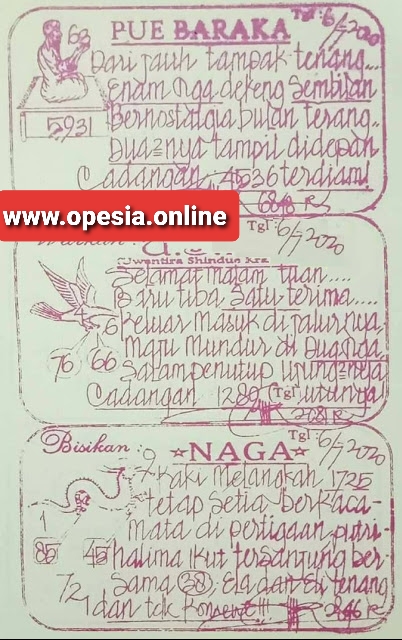 PUE BARAKA
Tgl: 6/7 2020
63
5931
Dari jauh tampak tenang...
Enam Nga dekeng Sembilan
Bernostalgia bulan terang..
Dua2nya tampil didepan
Cadangan 4536 terdiam!
www.opesia.online
Tgl: 6/7 2020
Selamat malam tuan....
Baru tiba Satu terima.....
Keluar Masuk di jalurnya,
Maju Mundur di Dua Nga
76 66
Salam penutup
Cadangan 1289
Bisikan : NAGA
Tgl: 6/7 2020
Kaki Melangkah 1725
tetap Setia berkaca-
mata di pertigaan putri
1
85 45
halima Ikut tersanjung ber
72
Sama 38 Ela dan Eli tenang
dan tdk